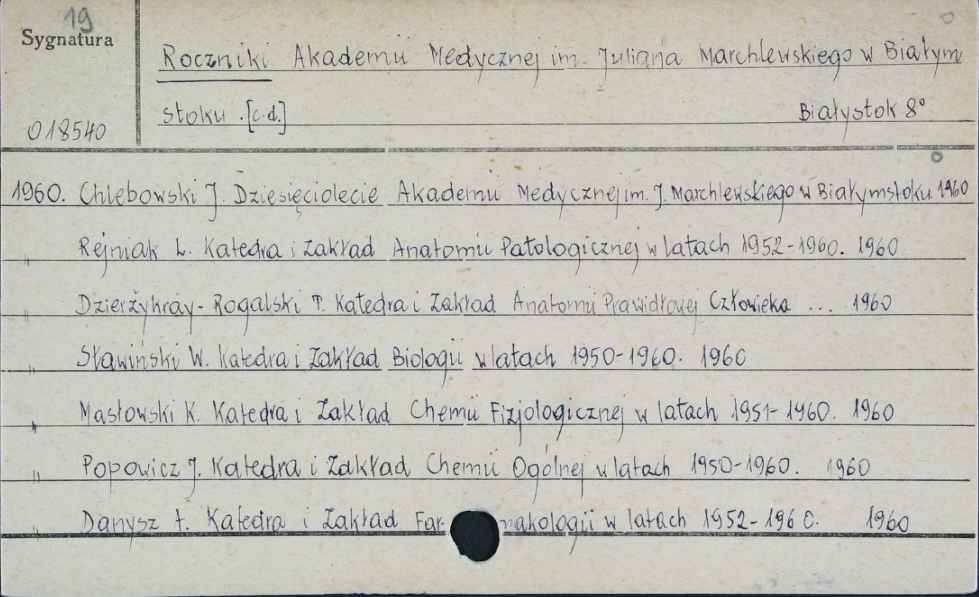 19
Sygnatura
Roczniki Akademii Medycznej im. Juliana Marchlewskiego w Białym
stoku . [c.d.]
Białystok 8°
018540
1960. Chlebowski J. Dziesięciolecie Akademii Medycznej im. J. Marchlewskiego w Białymstoku 1960
„ Rejniak L. Katedra i Zakład Anatomii Patologicznej w latach 1952-1960. 1960
„ Dzierżykray-Rogalski T. Katedra i Zakład Anatomii Prawidłowej Człowieka ... 1960
„ Sławiński W. Katedra i Zakład Biologii w latach 1950-1960. 1960
„ Masłowski K. Katedra i Zakład Chemii Fizjologicznej w latach 1951-1960. 1960
„ Popowicz J. Katedra i Zakład Chemii Ogólnej w latach 1950-1960. 1960
„ Danysz A. Katedra i Zakład Far- makologii w latach 1952-1960. 1960